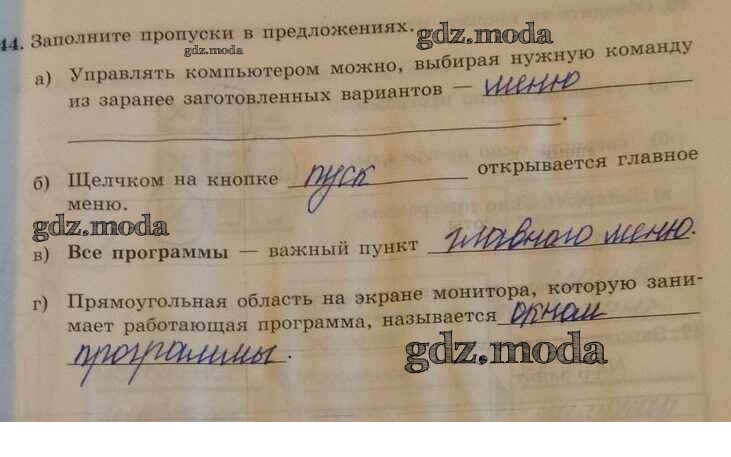 44. Заполните пропуски в предложениях.
gdz.moda
gdz.moda
а) Управлять компьютером можно, выбирая нужную команду
из заранее заготовленных вариантов — меню
.
б) Щелчком на кнопке пуск открывается главное
меню.
gdz.moda
в) Все программы — важный пункт главного меню.
г) Прямоугольная область на экране монитора, которую зани-
мает работающая программа, называется окном
программы.
gdz.moda